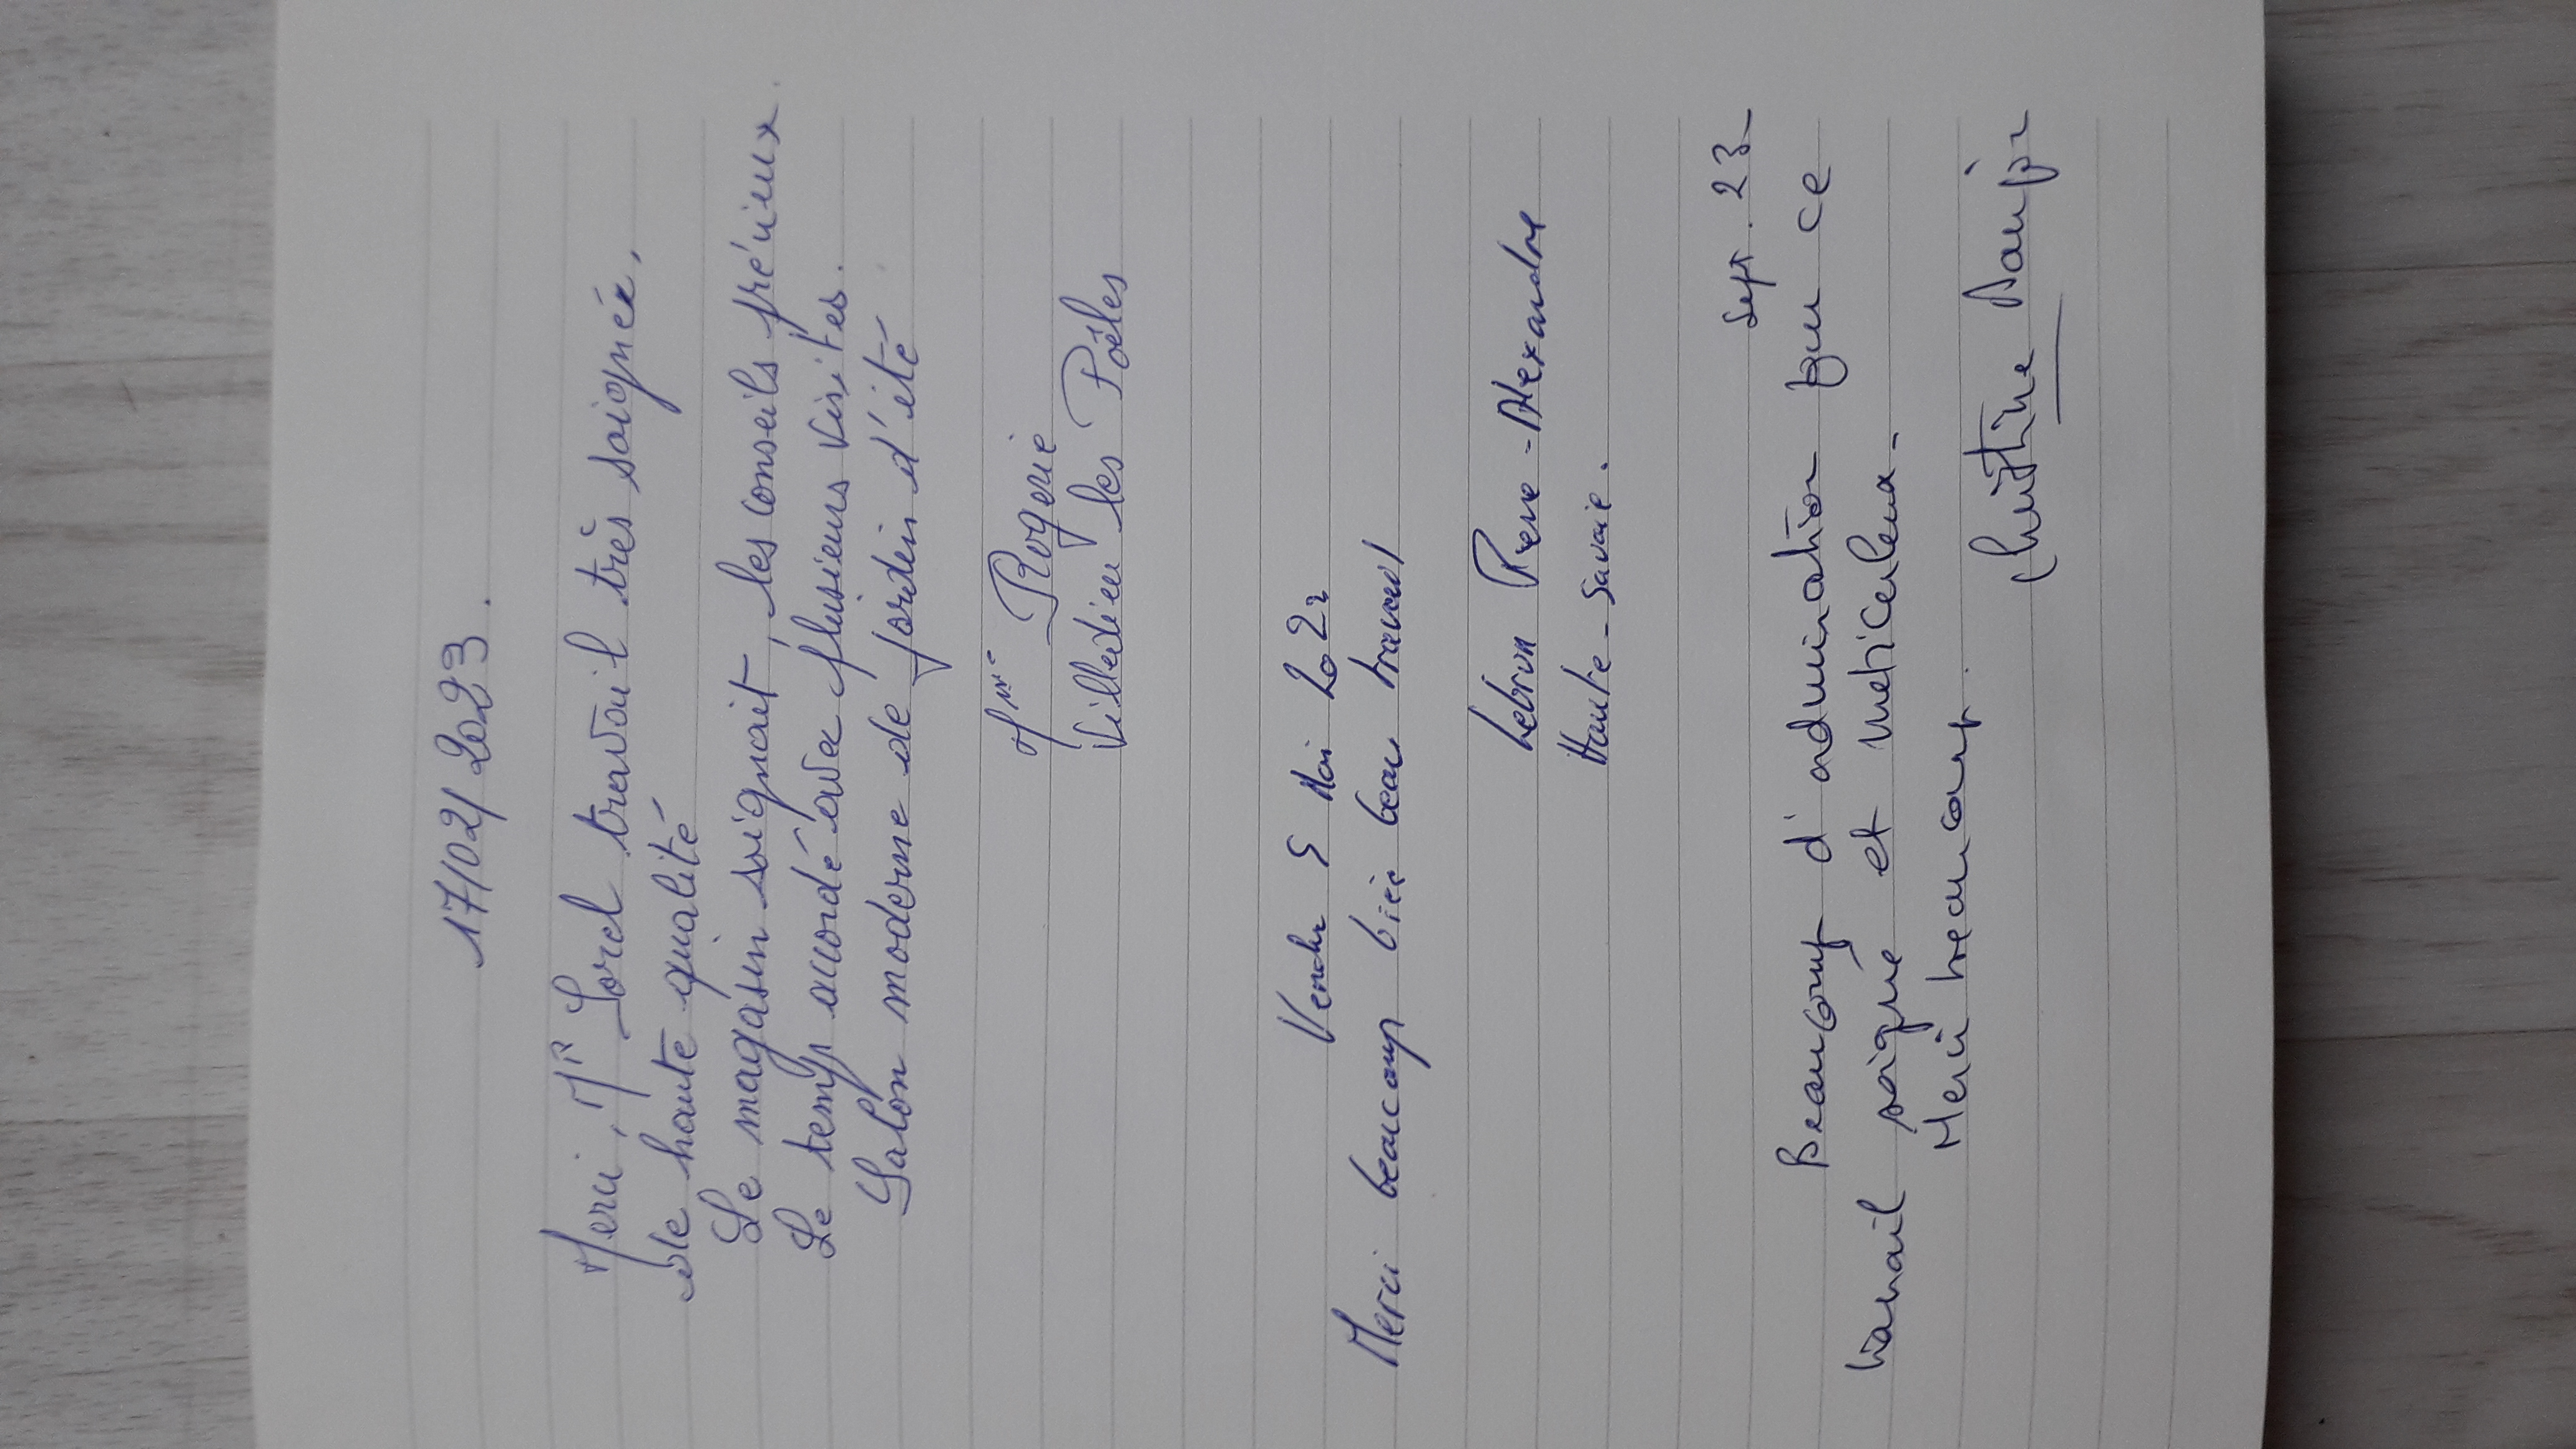 17/02/2023.
Merci, MR Sorel travail très soignée,
de haute qualité
Le magasin soignait, les conseils précieux.
Le temp accordé avec plusieurs visites.
Salon moderne de jardin d'été
Mme Rogerie
Villedieu les Poêles
5 Mai
Merci beaucoup très beau travail
Lebrun Pierre-Alexandre
Haute-Savoie.
Sept. 23
Beaucoup d'admiration pour ce
travail soigné et méticuleux.
Merci beaucoup.
Christine